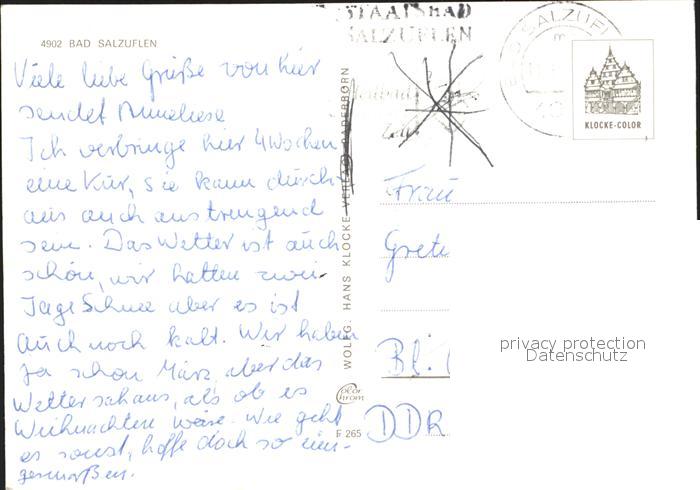 4902 BAD SALZUFLEN
Viele liebe Grüße von hier
sendet Anneliese
Ich verbringe hier 4 Wochen
eine Kur, sie kann durch-
aus auch anstrengend
sein. Das Wetter ist auch
schön, wir hatten zwei
Tage Schnee aber es ist
auch noch kalt. Wir haben
ja schon März, aber das
Wetter schaus, als ob es
Weihnachten wäre. Wie geht
es sonst, hoffe doch so eini-
germaßen.
WOLFG. HANS KLOCKE VERLAG PADERBORN
color
chrom
F 265
STAATSBAD
SALZUFLEN
BAD SALZUFLEN
KLOCKE-COLOR
Frau
Grete
Bl.
DDR
privacy protection
Datenschutz